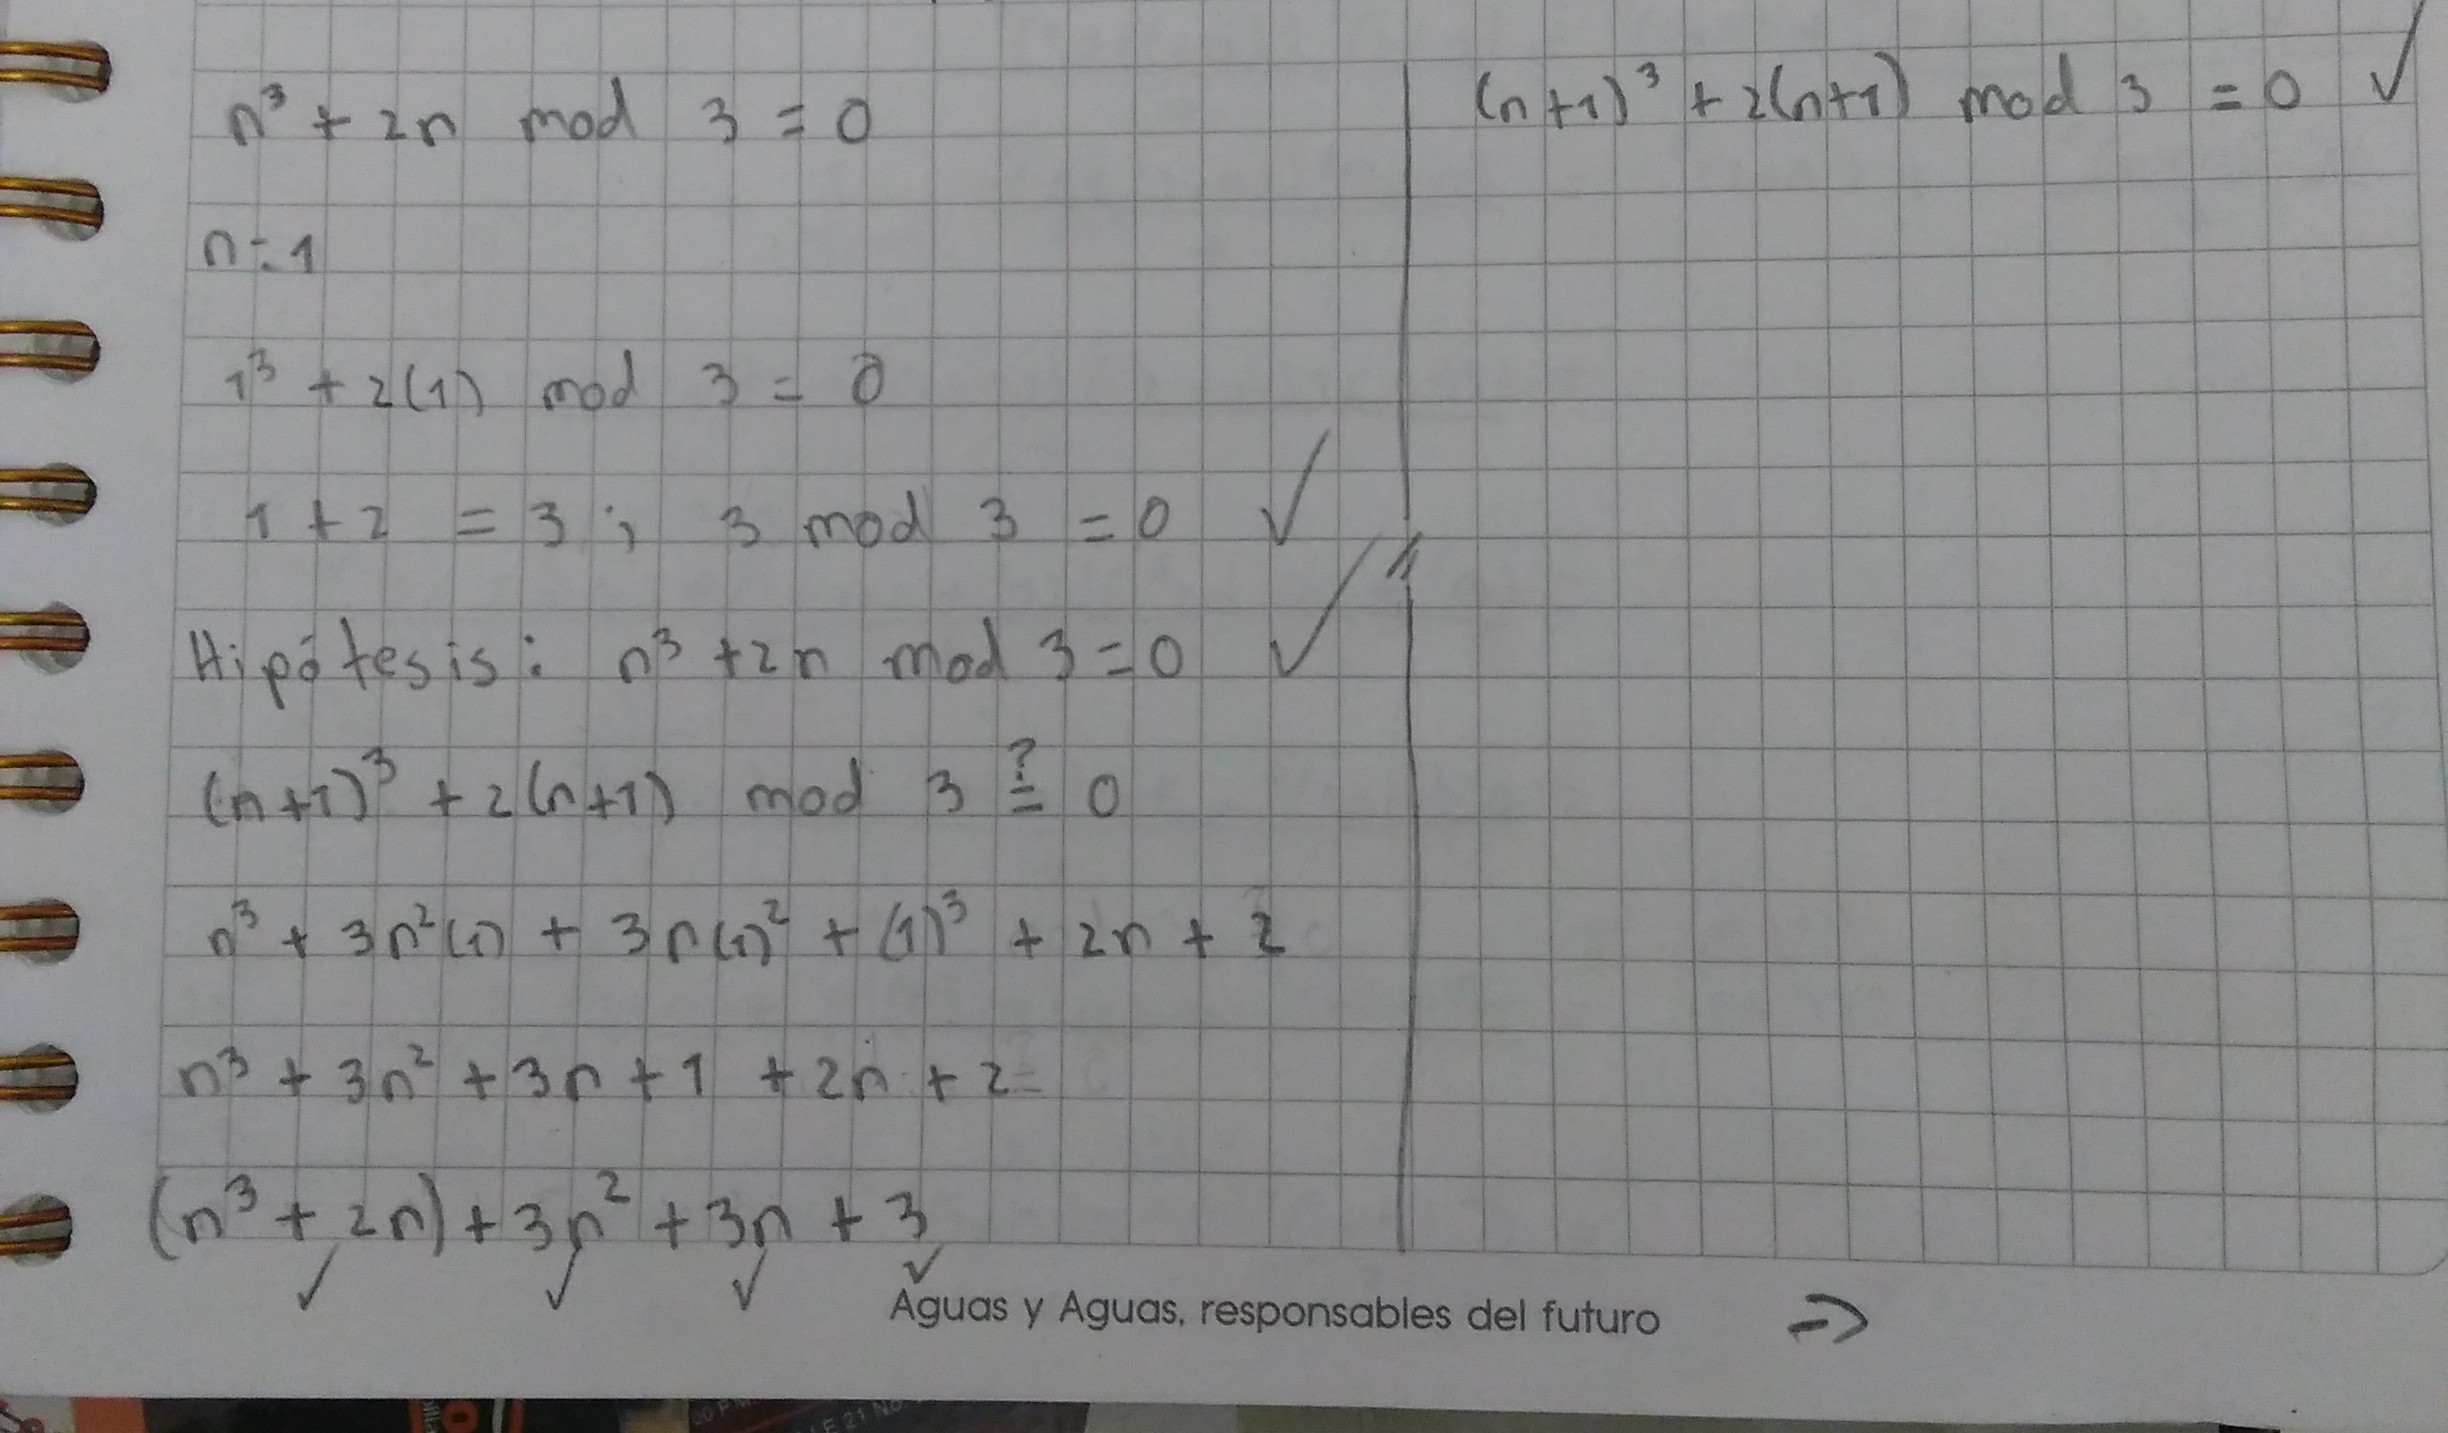 n³ + 2n mod 3 = 0
n = 1
1³ + 2(1) mod 3 = 0
1 + 2 = 3 ; 3 mod 3 = 0 ✓
Hipótesis: n³ + 2n mod 3 = 0 ✓
(n+1)³ + 2(n+1) mod 3 ≟ 0
n³ + 3n²(1) + 3n(1)² + (1)³ + 2n + 2
n³ + 3n² + 3n + 1 + 2n + 2
(n³ + 2n) + 3n² + 3n + 3
✓ ✓ ✓ ✓
(n+1)³ + 2(n+1) mod 3 = 0 ✓
Aguas y Aguas, responsables del futuro
⇒